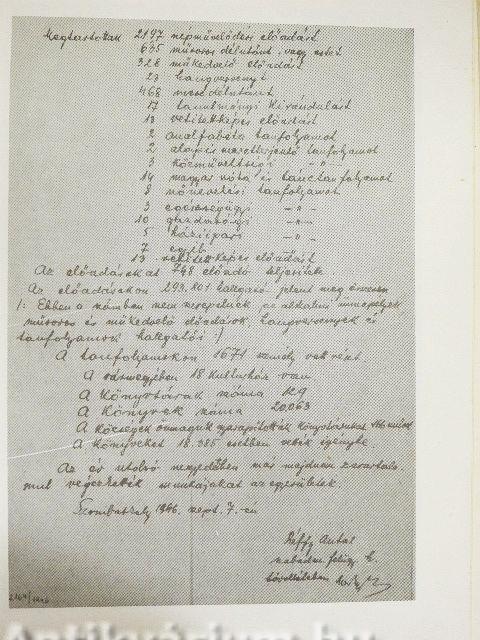 Megtartottak 2197 népművelődési előadást
635 műsoros délutánt, vagy estét
328 műkedvelő előadást
23 hangversenyt
468 mesedélutánt
17 tanulmányi kirándulást
13 vetítettképes előadást
2 analfabéta tanfolyamot
2 alapismeretterjesztő tanfolyamot
3 közműveltségi -"-
14 magyar nóta és tánctanfolyamot
8 nőnevelési tanfolyamot
3 egészségügyi -"-
10 gazdasági -"-
5 háziipari -"-
7 egyéb
13 vetítettképes előadást
Az előadásokat 748 előadó teljesítette.
Az előadásokon 293.801 hallgató jelent meg összesen
/: Ebben a számban nem szerepelnek az alkalmi ünnepélyek,
műsoros és műkedvelő előadások, hangversenyek és
tanfolyamok hallgatói :/
A tanfolyamokon 1671 személy vett részt.
A vármegyében 18 kultúrház van
A könyvtárak száma 129
A könyvek száma 20.063
A községek önmaguk gyarapították könyvtárukat 166 művel
A könyveket 18.385 esetben vették igénybe.
Az év utolsó negyedében már majdnem zavartala-
nul végezhették munkájukat az egyesületek.
Szombathely 1946. szept. 7.-én
Déffy Antal
szabadm. felügy. h.
továbbítában
Antikvárium.hu